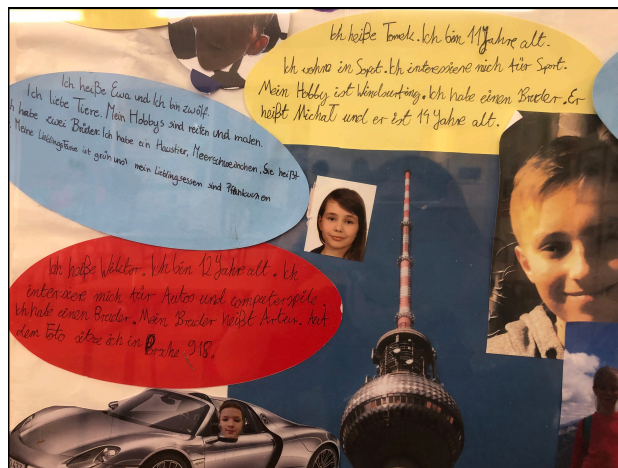 Ich heiße Tomek. Ich bin 11 Jahre alt.
Ich wohne in Sopot. Ich interessiere mich für Sport.
Mein Hobby ist Windsurfing. Ich habe einen Bruder. Er
heißt Michał und er ist 19 Jahre alt.
Ich heiße Ewa und Ich bin zwölf.
Ich liebe Tiere. Mein Hobbys sind reiten und malen.
habe zwei Brüder. Ich habe ein Haustier, Meerschweinchen. Sie heißt
Meine Lieblingsfarbe ist grün und mein Lieblingsessen sind Pfankuchen
Ich heiße Wiktor. Ich bin 12 Jahre alt. Ich
interesiere mich für Autos und computerspile.
Ich habe einen Bruder. Mein Bruder heißt Artur. Auf
dem Foto sitze ich in 918.